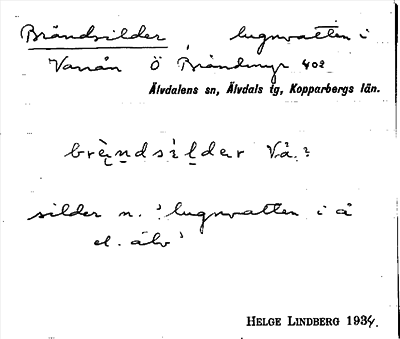 Brändsilder, lugnvatten i
Vanån Ö Brändmyr 402
Älvdalens sn, Älvdals tg, Kopparbergs län.
brèndsìlder Vå.
silder n. 'lugnvatten i å
el. älv'
HELGE LINDBERG 1934.